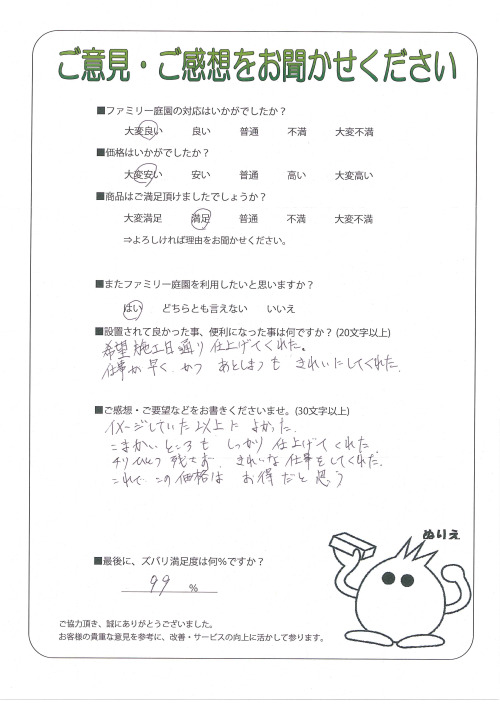 ご意見・ご感想をお聞かせください
■ファミリー庭園の対応はいかがでしたか？
大変良い 良い 普通 不満 大変不満
■価格はいかがでしたか？
大変安い 安い 普通 高い 大変高い
■商品はご満足頂けましたでしょうか？
大変満足 満足 普通 不満 大変不満
⇒よろしければ理由をお聞かせください。
■またファミリー庭園を利用したいと思いますか？
はい どちらとも言えない いいえ
■設置されて良かった事、便利になった事は何ですか？(20文字以上)
希望施工日通り仕上げてくれた。
仕事が早く、かつ あとしまつも きれいにしてくれた。
■ご感想・ご要望などをお書きくださいませ。(30文字以上)
イメージしていた以上に よかった。
こまかいところも しっかり仕上げてくれた
チリひとつ残さず、きれいな仕事をしてくれた。
これで この価格は お得だと思う
ぬりえ
■最後に、ズバリ満足度は何％ですか？
99 ％
ご協力頂き、誠にありがとうございました。
お客様の貴重な意見を参考に、改善・サービスの向上に活かして参ります。